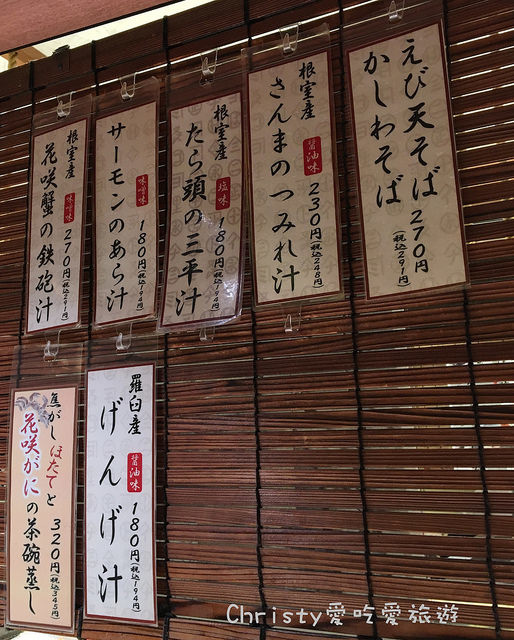 えび天そば
かしわそば
270円
(税込291円)
根室産
さんまのつみれ汁
醤油味
230円(税込248円)
根室産
たら頭の三平汁
塩味
180円(税込194円)
サーモンのあら汁
味噌味
180円(税込194円)
根室産
花咲蟹の鉄砲汁
味噌味
270円(税込291円)
羅臼産
げんげ汁
醤油味
180円(税込194円)
焦がしほたてと
花咲がにの茶碗蒸し
320円(税込345円)
Christy愛吃愛旅遊